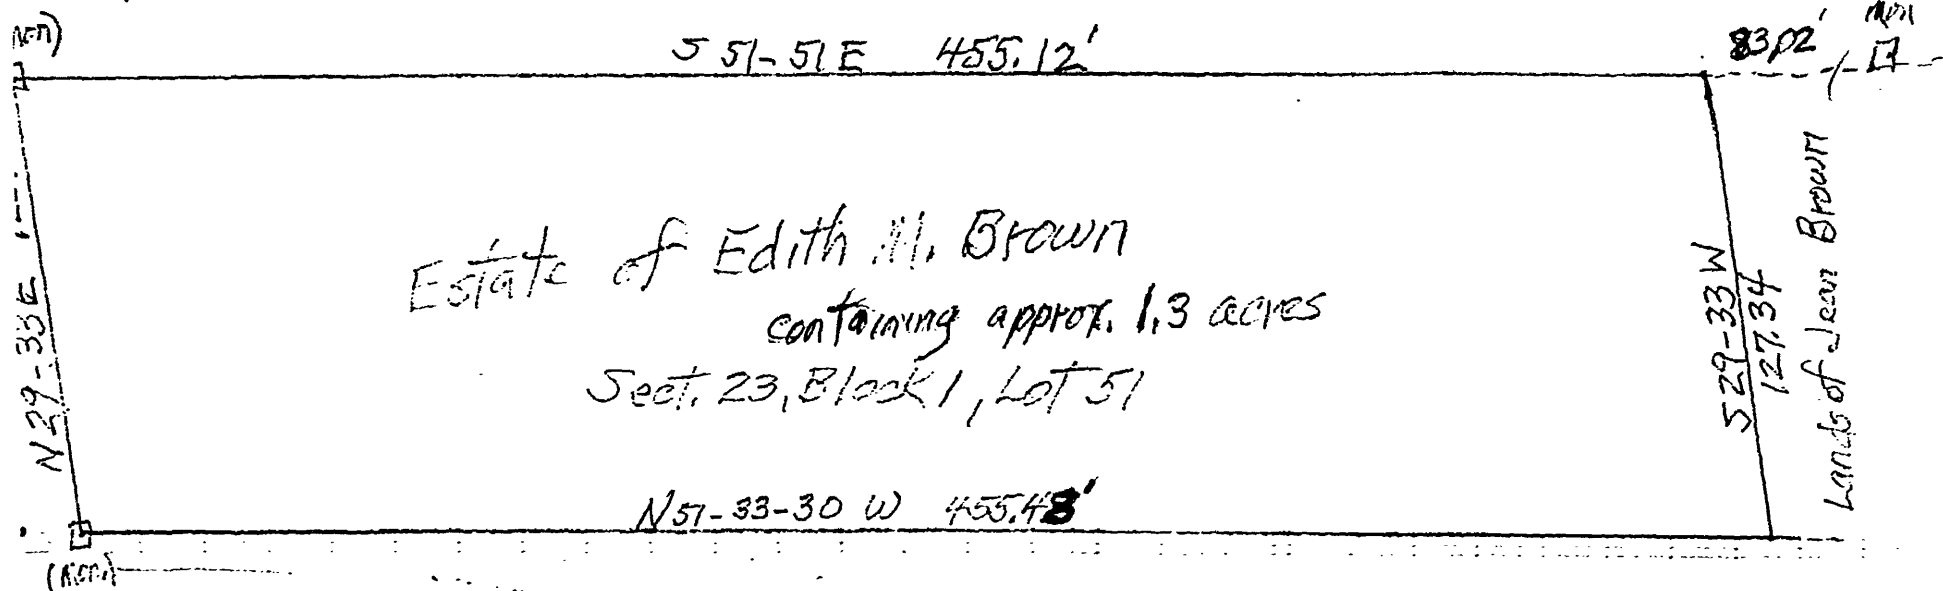 (Mon)
S 51-51 E 455.12'
83.02'
Mon
N 29-33 E
Estate of Edith M. Brown
containing approx. 1.3 acres
Sect. 23, Block 1, Lot 51
S 29-33 W
127.34
Lands of Jean Brown
N 51-33-30 W 455.48'
(Mon.)